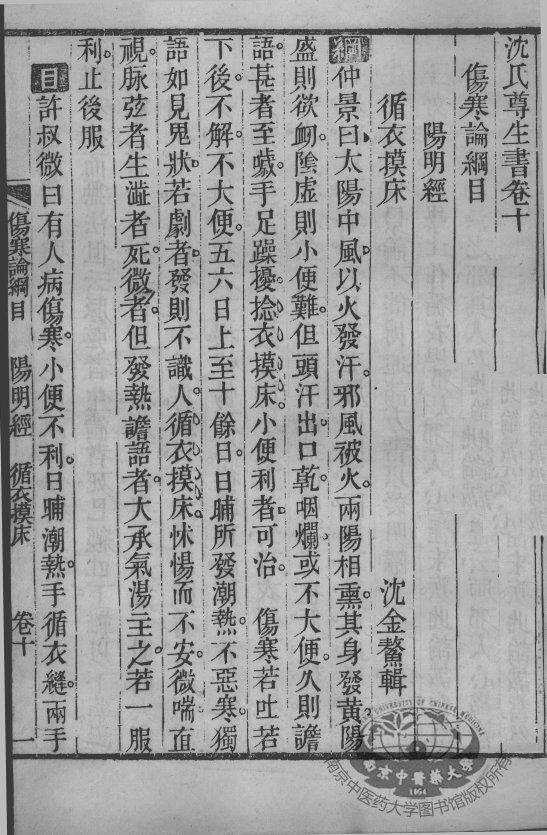 沈氏尊生書卷十
傷寒論綱目　沈金鰲輯
陽明經
循衣摸床
綱 仲景曰太陽中風以火發汗邪風被火兩陽相熏其身發黃陽
盛則欲衂陰虛則小便難但頭汗出口乾咽爛或不大便久則譫
語甚者至噦手足躁擾捻衣摸床小便利者可治　傷寒若吐若
下後不解不大便五六日上至十餘日日晡所發潮熱不惡寒獨
語如見鬼狀若劇者發則不識人循衣摸床怵惕而不安微喘直
視脉弦者生濇者死微者但發熱譫語者大承氣湯主之若一服
利止後服
目 許叔微曰有人病傷寒小便不利日晡潮熱手循衣縫兩手
傷寒論綱目　陽明經　循衣摸床　卷十　一
NANJING UNIVERSITY OF CHINESE MEDICINE
南京中醫藥大學
1954
南京中医药大学图书馆版权所有